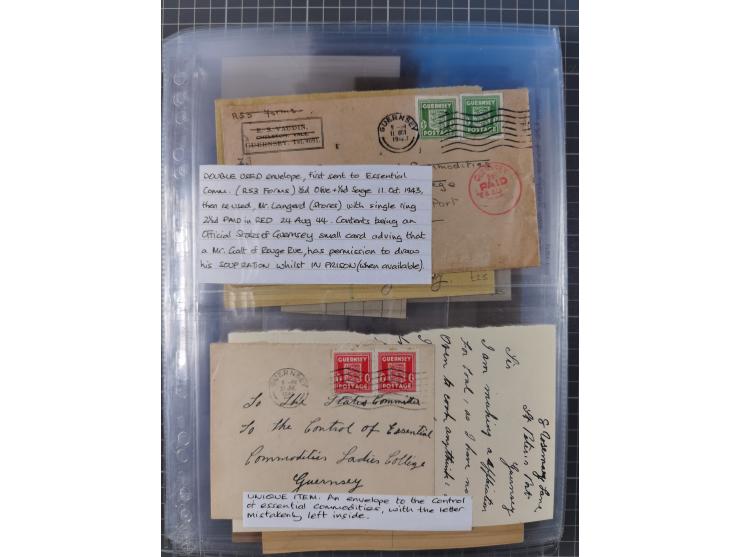 RS3 Forms.
E. S. VAUDIN,
GUERNSEY
11 OCT
GUERNSEY
POSTAGE
GUERNSEY
POSTAGE
GUERNSEY
PAID
Port
DOUBLE USED envelope, first sent to Essential
Comm. (RS3 Forms) ½d Olive + ½d Sage 11. Oct. 1943,
then re used, Mr. Langard (Stores) with single ring
2½d PAID in RED 24 Aug 44. Contents being an
Official States of Guernsey small card adving that
a Mr. Galt of Rouge Rue, has permission to draw
his SOUP RATION whilst IN PRISON (when available).
£25
GUERNSEY
GUERNSEY
POSTAGE
GUERNSEY
POSTAGE
To The States Committee
To the Control of Essential
Commodities Ladies College
Guernsey
UNIQUE ITEM. An envelope to the Control
of essential commodities, with the letter
mistakenly left inside.
6 Rosemary Lane,
St Peters Port.
Guernsey
Sir
I am making a application
for coal, as I have no
oven to cook anything